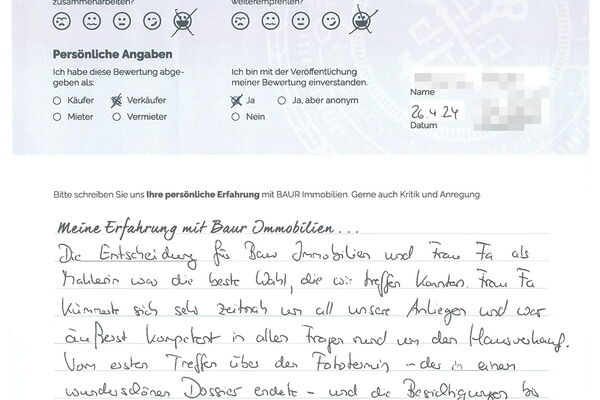 zusammenarbeiten?
weiterempfehlen?
Persönliche Angaben
Ich habe diese Bewertung abge-
geben als:
Käufer Verkäufer
Mieter Vermieter
Ich bin mit der Veröffentlichung
meiner Bewertung einverstanden.
Ja Ja, aber anonym
Nein
Name
26.4.24
Datum
Bitte schreiben Sie uns Ihre persönliche Erfahrung mit BAUR Immobilien. Gerne auch Kritik und Anregung.
Meine Erfahrung mit Baur Immobilien...
Die Entscheidung für Baur Immobilien und Frau Fa als
Maklerin war die beste Wahl, die wir treffen konnten. Frau Fa
kümmerte sich sehr zeitnah um all unsere Anliegen und war
äußerst kompetent in allen Fragen rund um den Hausverkauf.
Vom ersten Treffen über den Fototermin - der in einem
wunderschönen Dossier endete - und die Besichtigungen bis